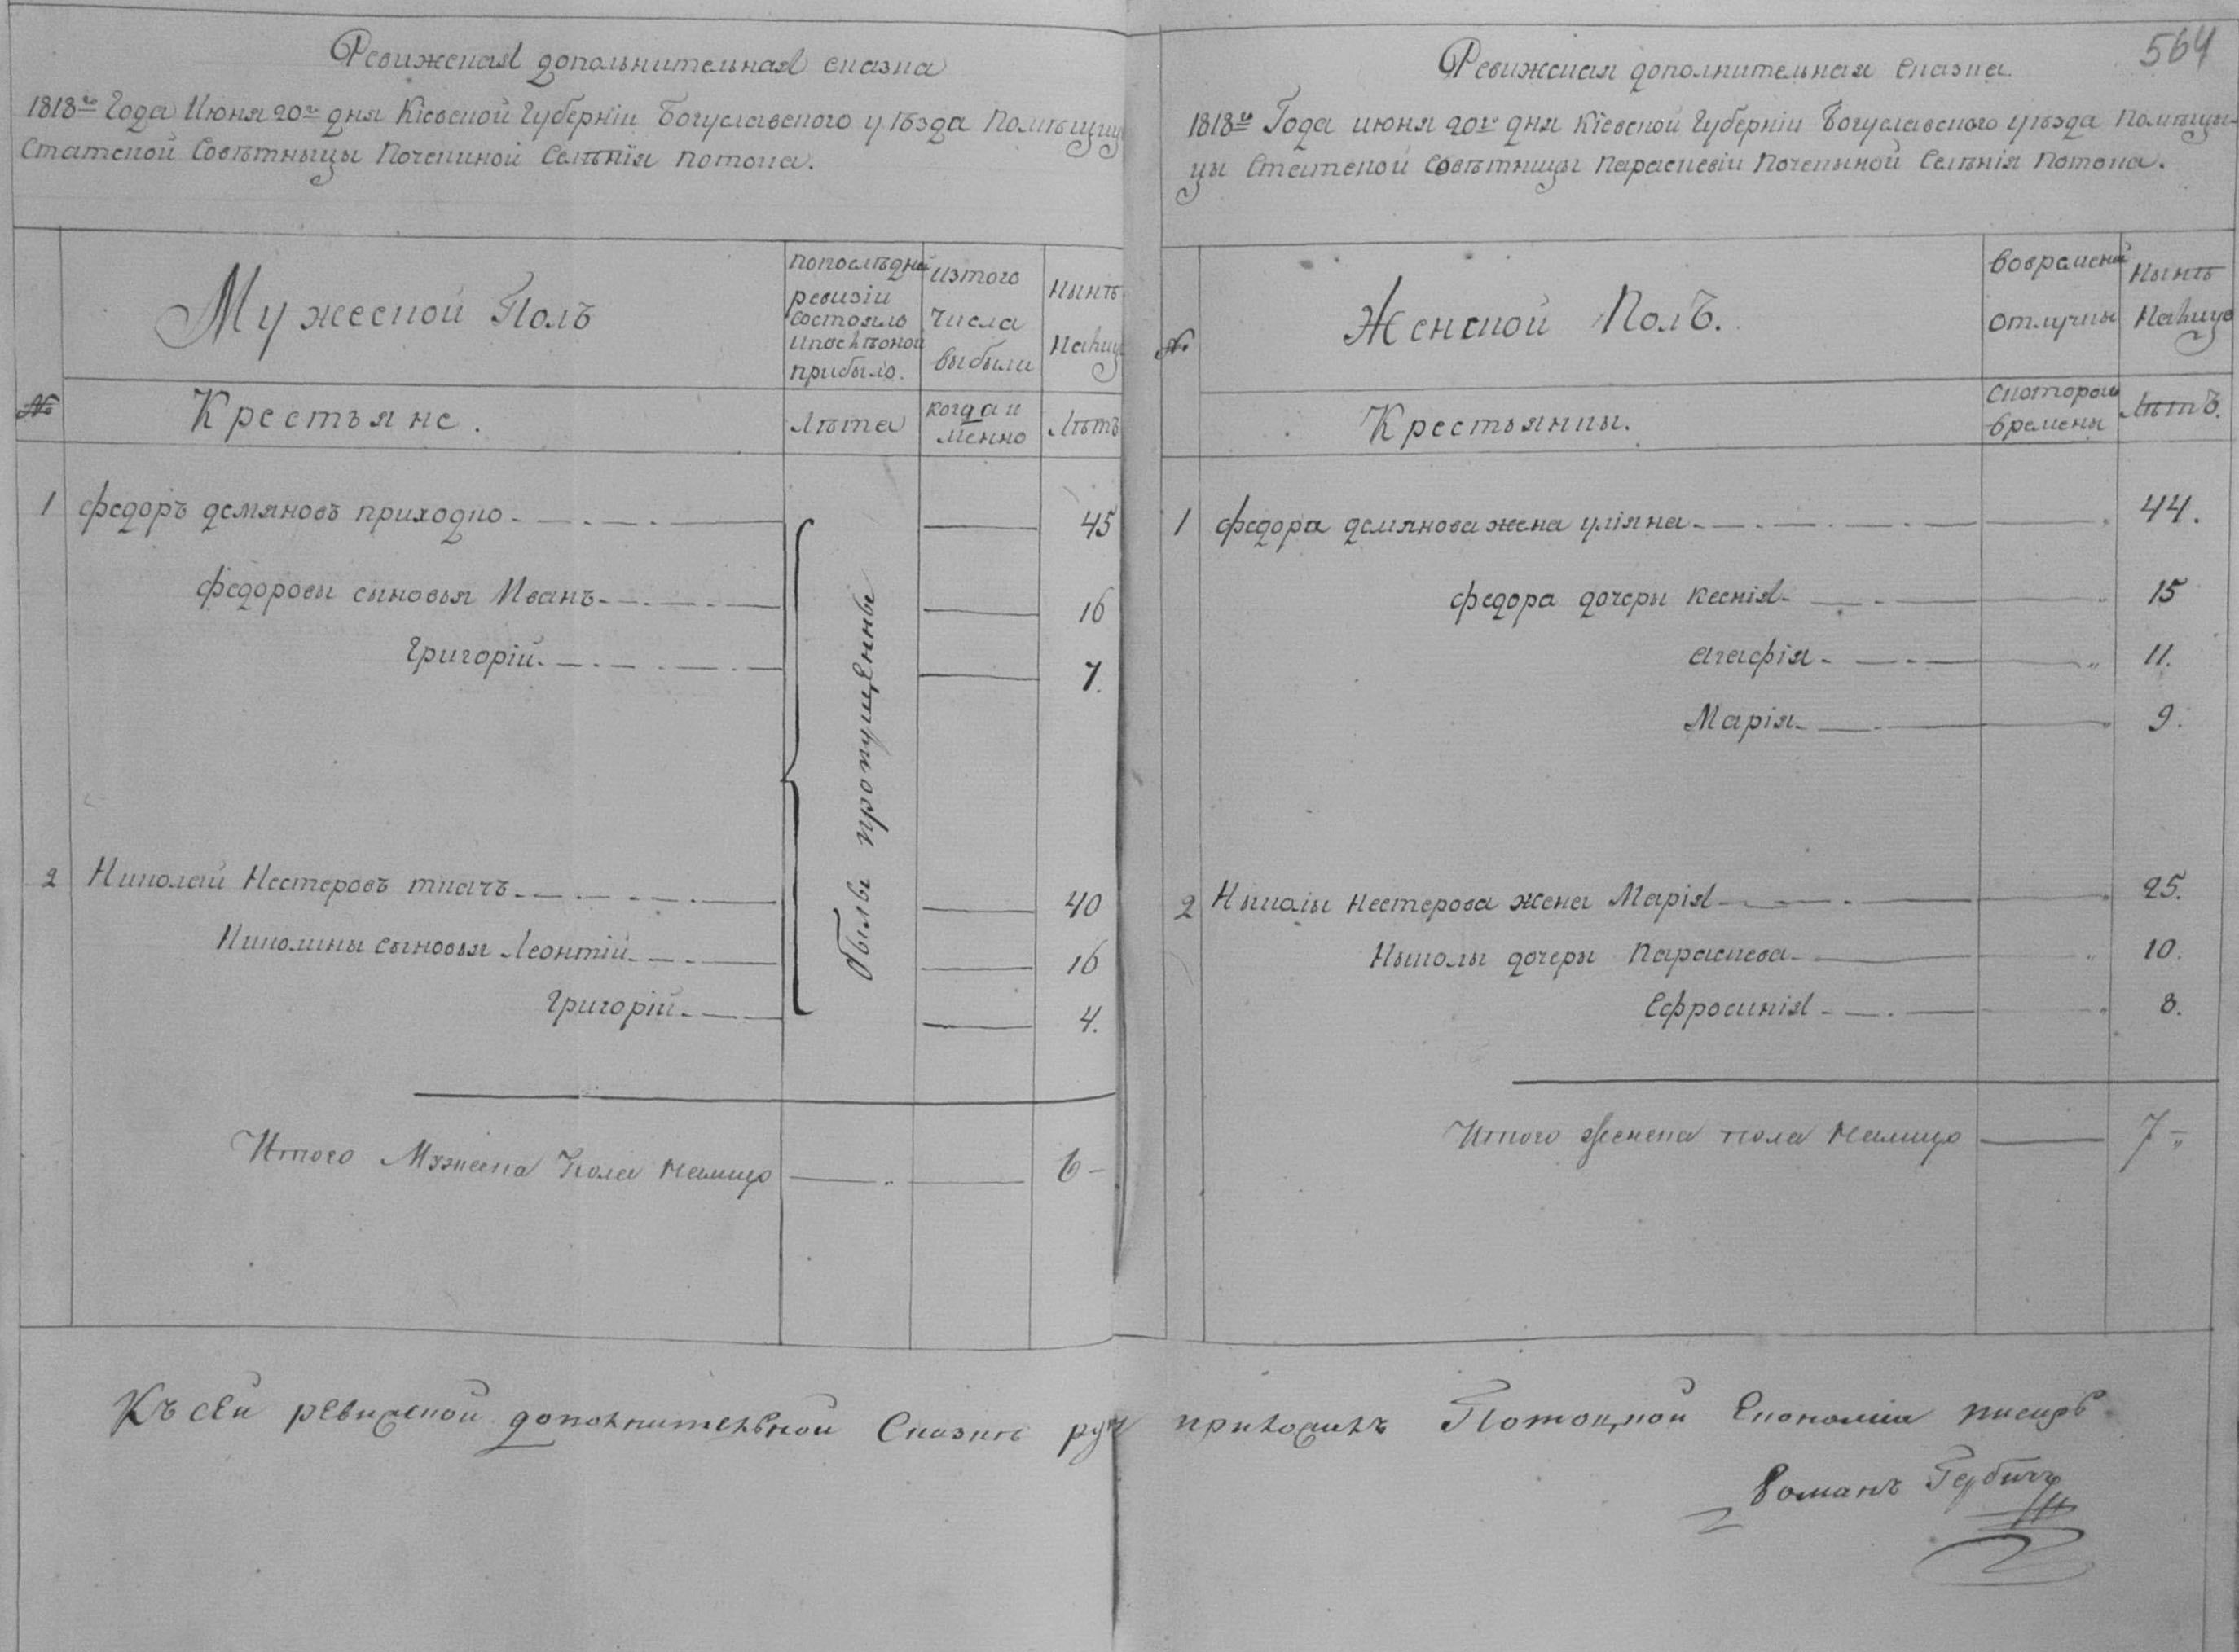 Ревижская дополнительная сказка
1818го Года Июня 20го дня Кіевской Губерніи Богуславского уѣзда Помѣщицы
Статской Совѣтныцы Почепиной Селѣнія Потока.
№
Мужеской Полъ
Попослѣдней ревизіи состояло ипослѣоной прибыло.
Изтого числа выбыли
Нынѣ налицо
Крестьяне.
Лѣта
когда именно
Лѣтъ
1 федоръ демяновъ приходко 45
федоровы сыновья Иванъ 16
Григорій 7.
были пропущенны
2 Николай Нестеровъ ткачъ 40
Николины сыновья Леонтій 16
Григорій 4.
Итого Мужеска Пола налицо 6
564
Ревижская дополнительная сказка.
1818го Года июня 20го дня Кіевской Губерніи Богуславского уѣзда Помѣщи-
цы Статской Совѣтницы Параскевіи Почепыной Селѣнія Потока.
№
Женской Полъ.
вовременной отлучки
Нынѣ налицо
Крестьянки.
Скоторого времены
Лѣтъ.
1 федора демянова жена уліяна 44.
федора дочеры ксенія 15
агафія 11.
Марія 9.
2 Ныколы нестерова жена Марія 25.
Ныколы дочеры Параскева 10.
Ефросинія 8.
Итого женска пола налицо 7
Къ сей ревижской дополнительной Сказкѣ рук приложилъ Потоцкой Економіи писарь
Романъ